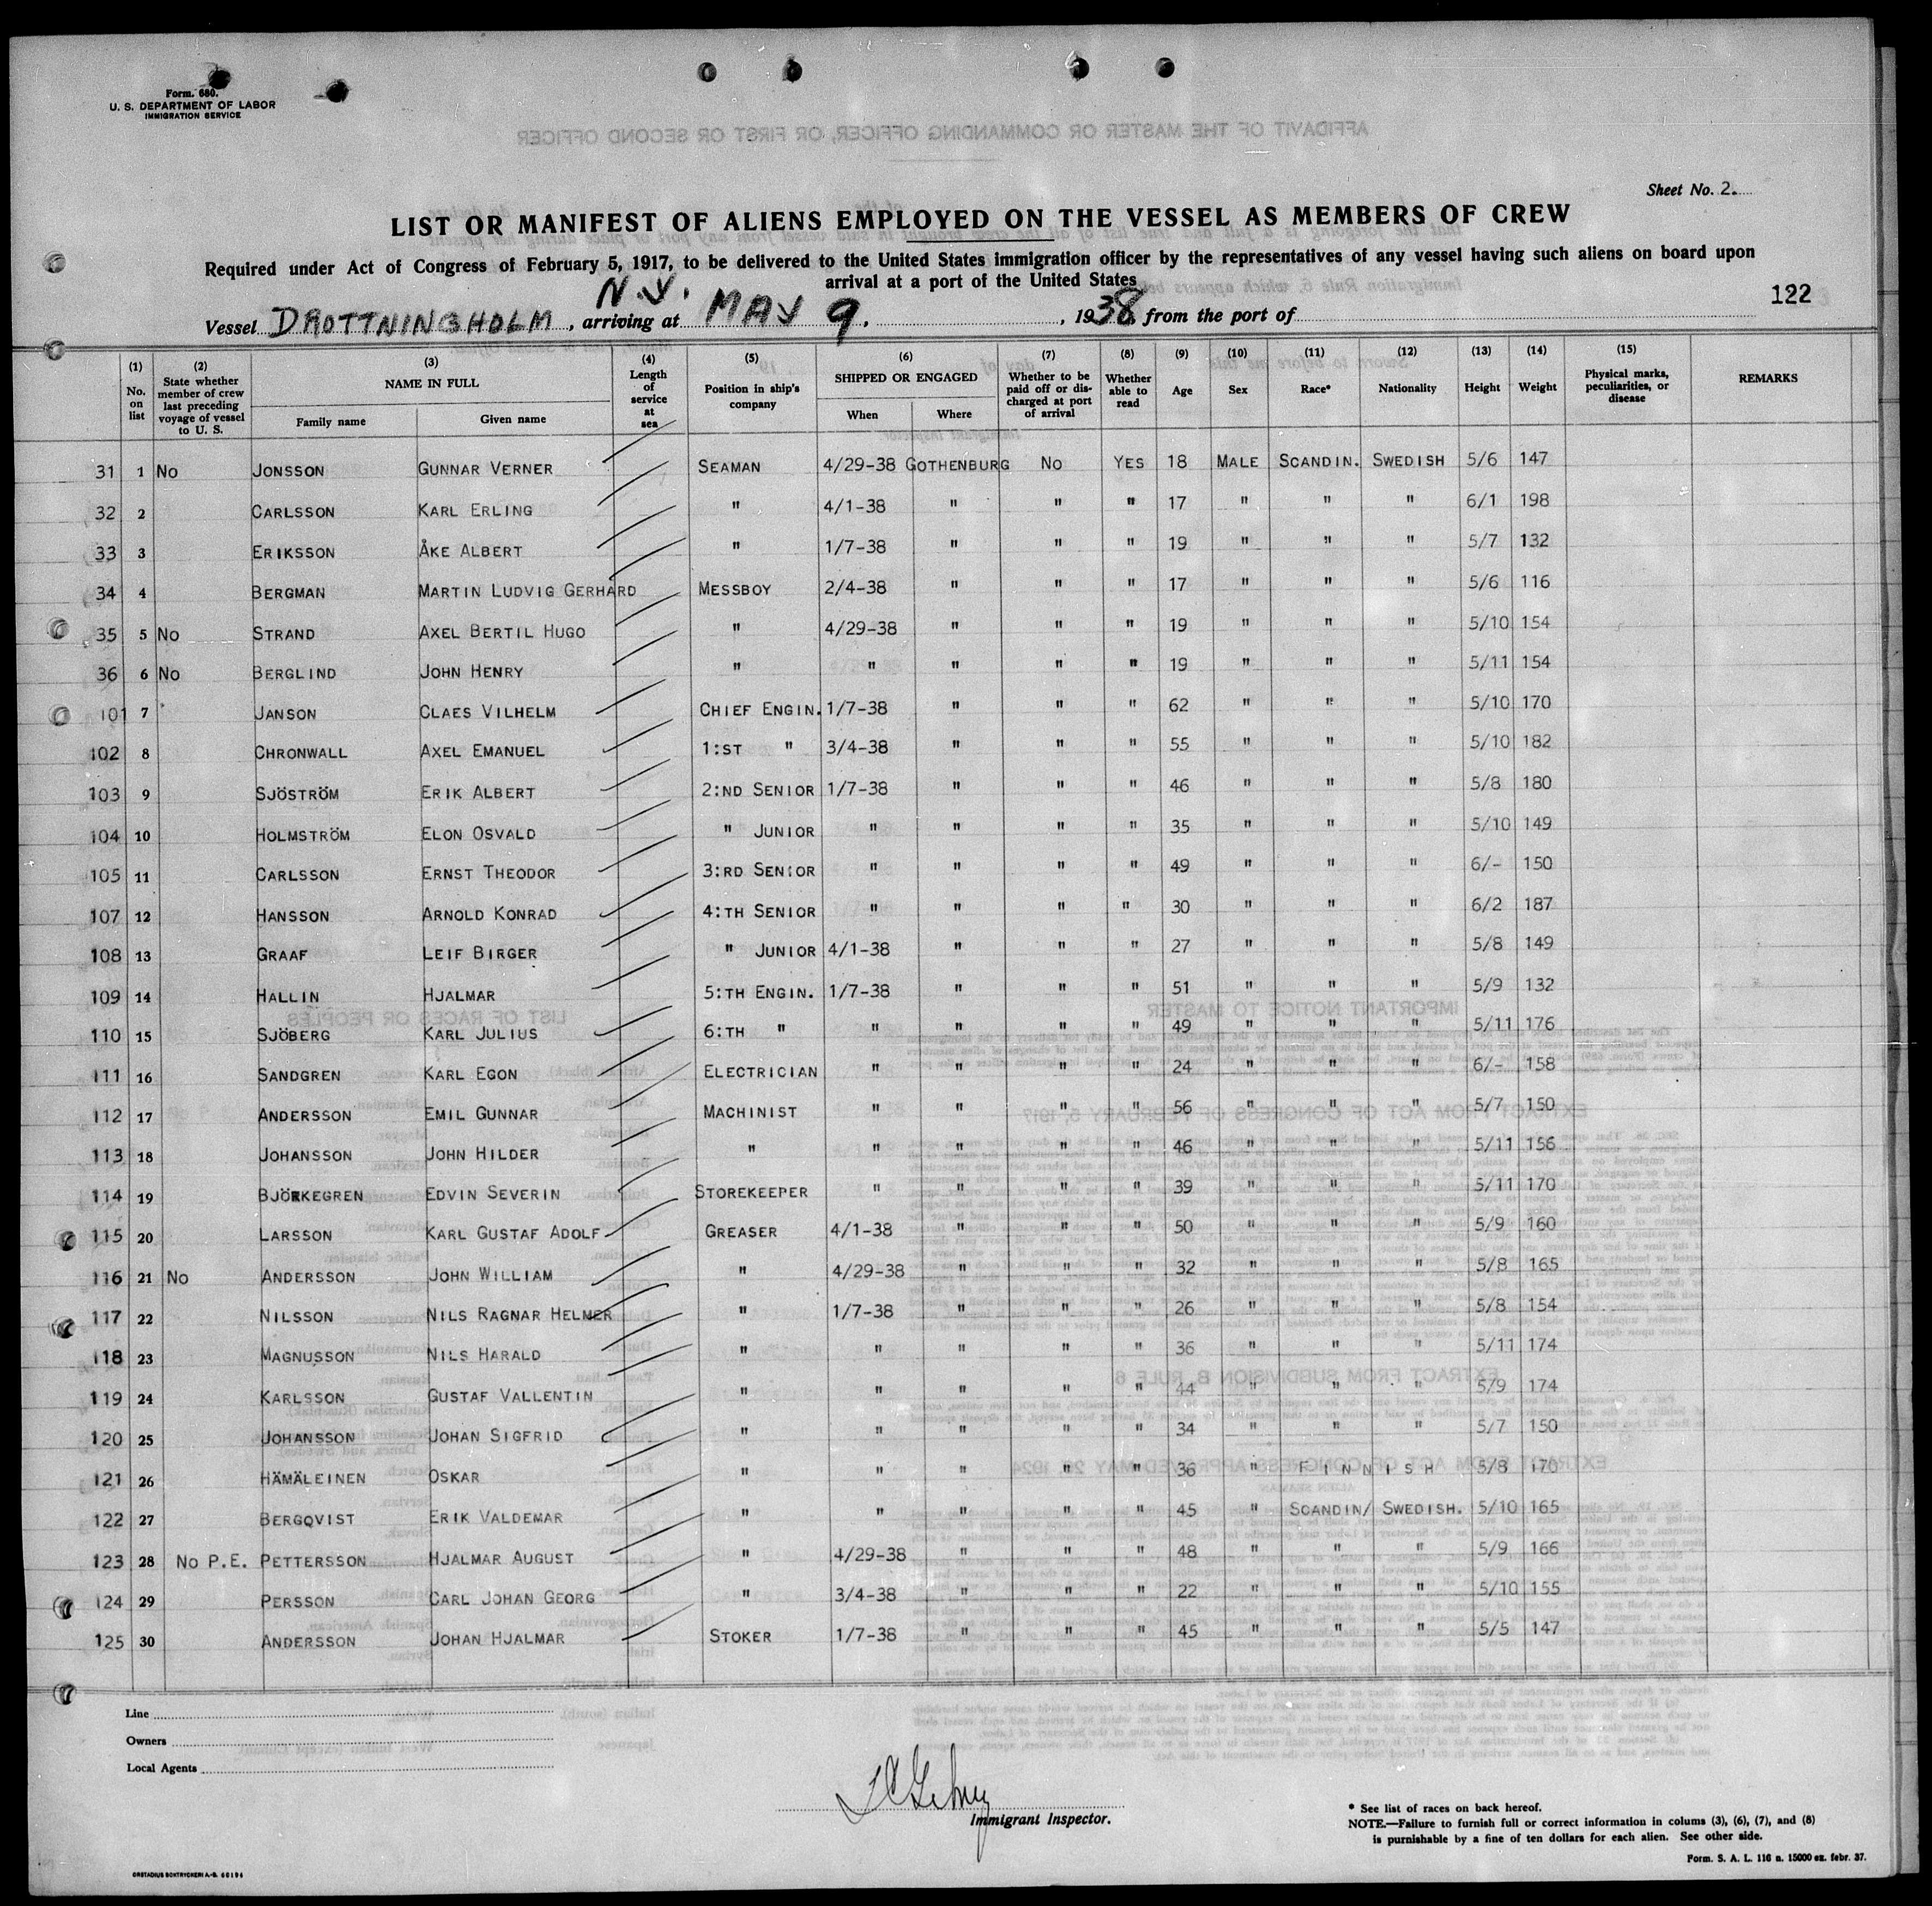 Form. 680.
U. S. DEPARTMENT OF LABOR
IMMIGRATION SERVICE
AFFIDAVIT OF THE MASTER OR COMMANDING OFFICER, OR FIRST OR SECOND OFFICER
Sheet No. 2.
LIST OR MANIFEST OF ALIENS EMPLOYED ON THE VESSEL AS MEMBERS OF CREW
Required under Act of Congress of February 5, 1917, to be delivered to the United States immigration officer by the representatives of any vessel having such aliens on board upon
arrival at a port of the United States
122
Vessel DROTTNINGHOLM, arriving at N.Y. MAY 9, 1938 from the port of
(1) (2) (3) (4) (5) (6) (7) (8) (9) (10) (11) (12) (13) (14) (15)
No. on list State whether member of crew last preceding voyage of vessel to U. S. NAME IN FULL Length of service at sea Position in ship's company SHIPPED OR ENGAGED Whether to be paid off or discharged at port of arrival Whether able to read Age Sex Race* Nationality Height Weight Physical marks, peculiarities, or disease REMARKS
Family name Given name When Where
31 1 No JONSSON GUNNAR VERNER SEAMAN 4/29-38 GOTHENBURG No YES 18 MALE SCANDIN. SWEDISH 5/6 147
32 2 CARLSSON KARL ERLING " 4/1-38 " " " 17 " " " 6/1 198
33 3 ERIKSSON ÅKE ALBERT " 1/7-38 " " " 19 " " " 5/7 132
34 4 BERGMAN MARTIN LUDVIG GERHARD MESSBOY 2/4-38 " " " 17 " " " 5/6 116
35 5 No STRAND AXEL BERTIL HUGO " 4/29-38 " " " 19 " " " 5/10 154
36 6 No BERGLIND JOHN HENRY " " " " " 19 " " " 5/11 154
101 7 JANSON CLAES VILHELM CHIEF ENGIN. 1/7-38 " " " 62 " " " 5/10 170
102 8 CHRONWALL AXEL EMANUEL 1:ST " 3/4-38 " " " 55 " " " 5/10 182
103 9 SJÖSTRÖM ERIK ALBERT 2:ND SENIOR 1/7-38 " " " 46 " " " 5/8 180
104 10 HOLMSTRÖM ELON OSVALD " JUNIOR " " " " 35 " " " 5/10 149
105 11 CARLSSON ERNST THEODOR 3:RD SENIOR " " " " 49 " " " 6/- 150
107 12 HANSSON ARNOLD KONRAD 4:TH SENIOR " " " " 30 " " " 6/2 187
108 13 GRAAF LEIF BIRGER " JUNIOR 4/1-38 " " " 27 " " " 5/8 149
109 14 HALLIN HJALMAR 5:TH ENGIN. 1/7-38 " " " 51 " " " 5/9 132
110 15 SJÖBERG KARL JULIUS 6:TH " " " " " 49 " " " 5/11 176
111 16 SANDGREN KARL EGON ELECTRICIAN " " " " 24 " " " 6/- 158
112 17 ANDERSSON EMIL GUNNAR MACHINIST " " " " 56 " " " 5/7 150
113 18 JOHANSSON JOHN HILDER " " " " " 46 " " " 5/11 156
114 19 BJÖRKEGREN EDVIN SEVERIN STOREKEEPER " " " " 39 " " " 5/11 170
115 20 LARSSON KARL GUSTAF ADOLF GREASER 4/1-38 " " " 50 " " " 5/9 160
116 21 No ANDERSSON JOHN WILLIAM " 4/29-38 " " " 32 " " " 5/8 165
117 22 NILSSON NILS RAGNAR HELMER " 1/7-38 " " " 26 " " " 5/8 154
118 23 MAGNUSSON NILS HARALD " " " " " 36 " " " 5/11 174
119 24 KARLSSON GUSTAF VALLENTIN " " " " " 44 " " " 5/9 174
120 25 JOHANSSON JOHAN SIGFRID " " " " " 34 " " " 5/7 150
121 26 HÄMÄLEINEN OSKAR " " " " " 36 " FINNISH 5/8 170
122 27 BERGQVIST ERIK VALDEMAR " " " " " 45 " SCANDIN/ SWEDISH. 5/10 165
123 28 No P.E. PETTERSSON HJALMAR AUGUST " 4/29-38 " " " 48 " " " 5/9 166
124 29 PERSSON CARL JOHAN GEORG " 3/4-38 " " " 22 " " " 5/10 155
125 30 ANDERSSON JOHAN HJALMAR STOKER 1/7-38 " " " 45 " " " 5/5 147
Line
Owners
Local Agents
Immigrant Inspector.
* See list of races on back hereof.
NOTE.—Failure to furnish full or correct information in colums (3), (6), (7), and (8)
is purnishable by a fine of ten dollars for each alien. See other side.
Form. S. A. L. 116 n. 15000 ex. febr. 37.